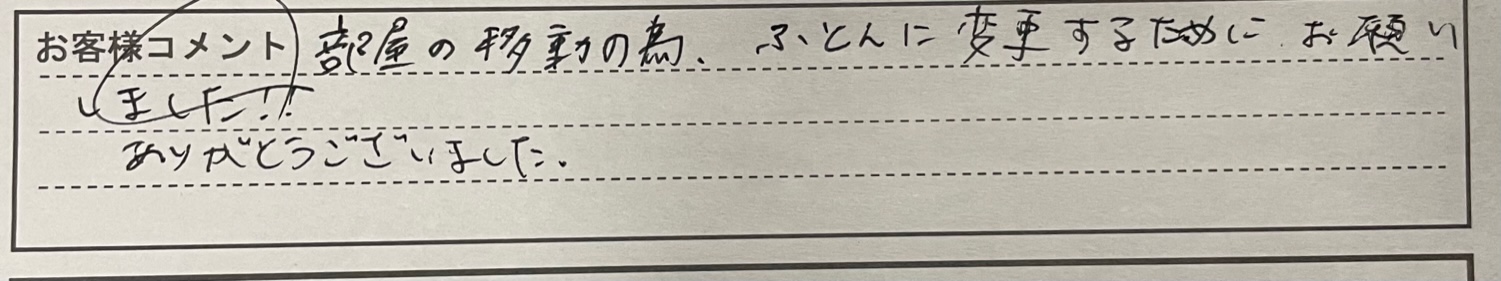 お客様コメント 部屋の移動の為、ふとんに変更するために お願い
しました!!
ありがとうございました。